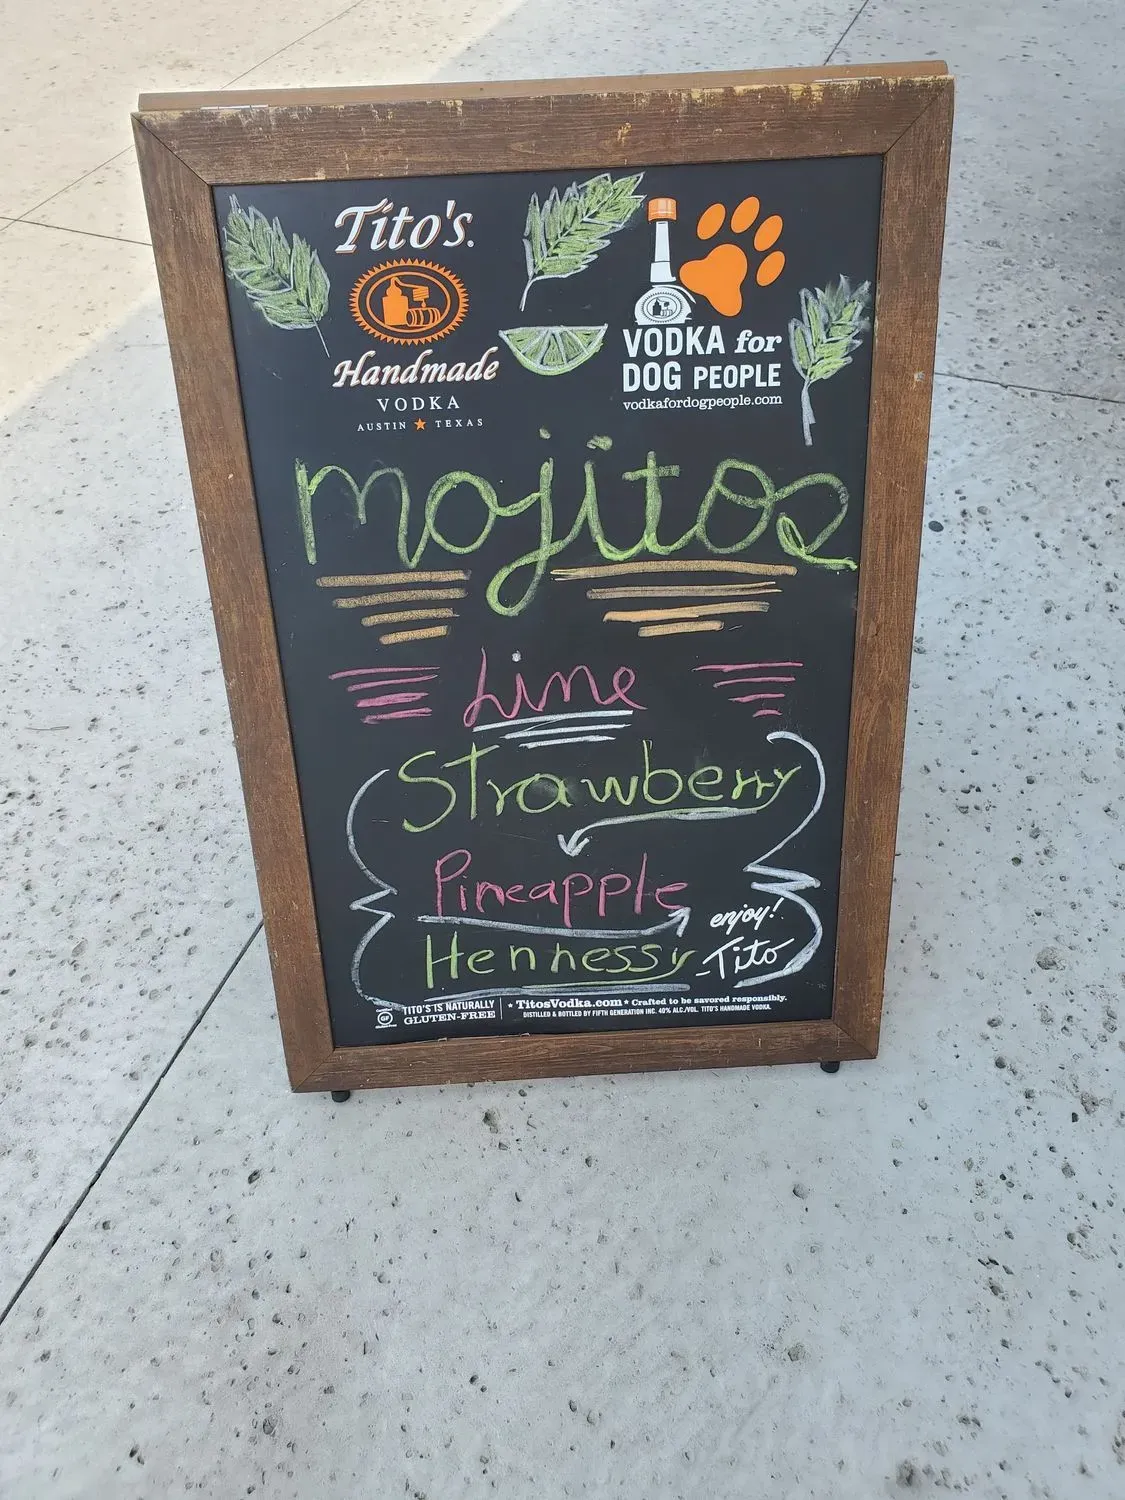 Tito's.
Handmade
VODKA
AUSTIN ★ TEXAS
VODKA for
DOG PEOPLE
vodkafordogpeople.com
mojitos
Lime
Strawberry
Pineapple
Hennessy
enjoy!
-Tito
GF
TITO'S IS NATURALLY
GLUTEN-FREE
★ TitosVodka.com ★ Crafted to be savored responsibly.
DISTILLED & BOTTLED BY FIFTH GENERATION INC. 40% ALC./VOL. TITO'S HANDMADE VODKA.